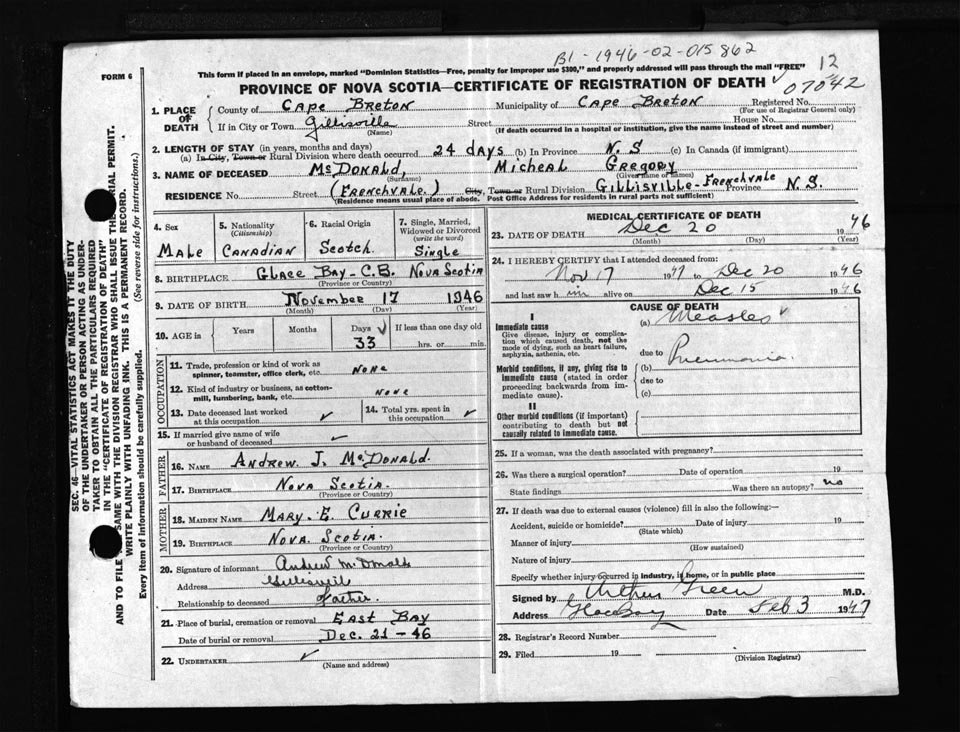 B1-1946-02-015862
FORM 6
This form if placed in an envelope, marked "Dominion Statistics—Free, penalty for improper use $300," and properly addressed will pass through the mail "FREE" 12
PROVINCE OF NOVA SCOTIA—CERTIFICATE OF REGISTRATION OF DEATH ✓ 07042
1. PLACE OF DEATH County of Cape Breton Municipality of Cape Breton Registered No.
(For use of Registrar General only)
If in City or Town Gillisville Street House No.
(Name) (If death occurred in a hospital or institution, give the name instead of street and number)
2. LENGTH OF STAY (in years, months and days)
(a) In City, Town or Rural Division where death occurred 24 days (b) In Province N.S (c) In Canada (if immigrant)
3. NAME OF DECEASED McDonald, Micheal Gregory
(Surname) (Given name or names)
RESIDENCE No. Street (Frenchvale.) City, Town or Rural Division Gillisville-Frenchvale Province N.S.
(Residence means usual place of abode. Post Office Address for residents in rural parts not sufficient)
4. Sex Male
5. Nationality (Citizenship) Canadian
6. Racial Origin Scotch
7. Single, Married, Widowed or Divorced (write the word) Single
8. BIRTHPLACE Glace Bay-C.B. Nova Scotia
(Province or Country)
9. DATE OF BIRTH November 17 1946
(Month) (Day) (Year)
10. AGE in Years Months Days ✓ If less than one day old
33 hrs. or min.
OCCUPATION
11. Trade, profession or kind of work as spinner, teamster, office clerk, etc. None
12. Kind of industry or business, as cotton-mill, lumbering, bank, etc. None
13. Date deceased last worked at this occupation ✓
14. Total yrs. spent in this occupation ✓
15. If married give name of wife or husband of deceased ✓
FATHER
16. NAME Andrew J. McDonald.
17. BIRTHPLACE Nova Scotia.
(Province or Country)
MOTHER
18. MAIDEN NAME Mary. E. Currie
19. BIRTHPLACE Nova. Scotia.
(Province or Country)
20. Signature of informant Andrew McDonald
Address
Relationship to deceased Father.
21. Place of burial, cremation or removal East Bay
Date of burial or removal Dec. 21-46
22. UNDERTAKER ✓
(Name and address)
MEDICAL CERTIFICATE OF DEATH
23. DATE OF DEATH Dec 20 1946
(Month) (Day) (Year)
24. I HEREBY CERTIFY that I attended deceased from:
Nov 17 19 to Dec 20 1946
and last saw him alive on Dec 15 1946
CAUSE OF DEATH
I
Immediate cause (a) Measles ✓
Give disease, injury or complication which caused death, not the mode of dying, such as heart failure, asphyxia, asthenia, etc.
due to Pneumonia.
Morbid conditions, if any, giving rise to immediate cause (stated in order proceeding backwards from immediate cause).
(b)
due to
(c)
II
Other morbid conditions (if important) contributing to death but not causally related to immediate cause.
25. If a woman, was the death associated with pregnancy?
26. Was there a surgical operation? Date of operation 19
State findings Was there an autopsy? no
27. If death was due to external causes (violence) fill in also the following:—
Accident, suicide or homicide? Date of injury 19
(State which)
Manner of injury
(How sustained)
Nature of injury
Specify whether injury occurred in industry, in home, or in public place
Signed by Arthur Green M.D.
Address Glace Bay Date Feb 3 1947
28. Registrar's Record Number
29. Filed 19
(Division Registrar)
SEC. 46—VITAL STATISTICS ACT MAKES IT THE DUTY
OF THE UNDERTAKER OR PERSON ACTING AS UNDER-
TAKER TO OBTAIN ALL THE PARTICULARS REQUIRED
IN THE "CERTIFICATE OF REGISTRATION OF DEATH"
AND TO FILE SAME WITH THE DIVISION REGISTRAR WHO SHALL ISSUE THE BURIAL PERMIT.
WRITE PLAINLY WITH UNFADING INK. THIS IS A PERMANENT RECORD.
Every item of information should be carefully supplied. (See reverse side for instructions.)